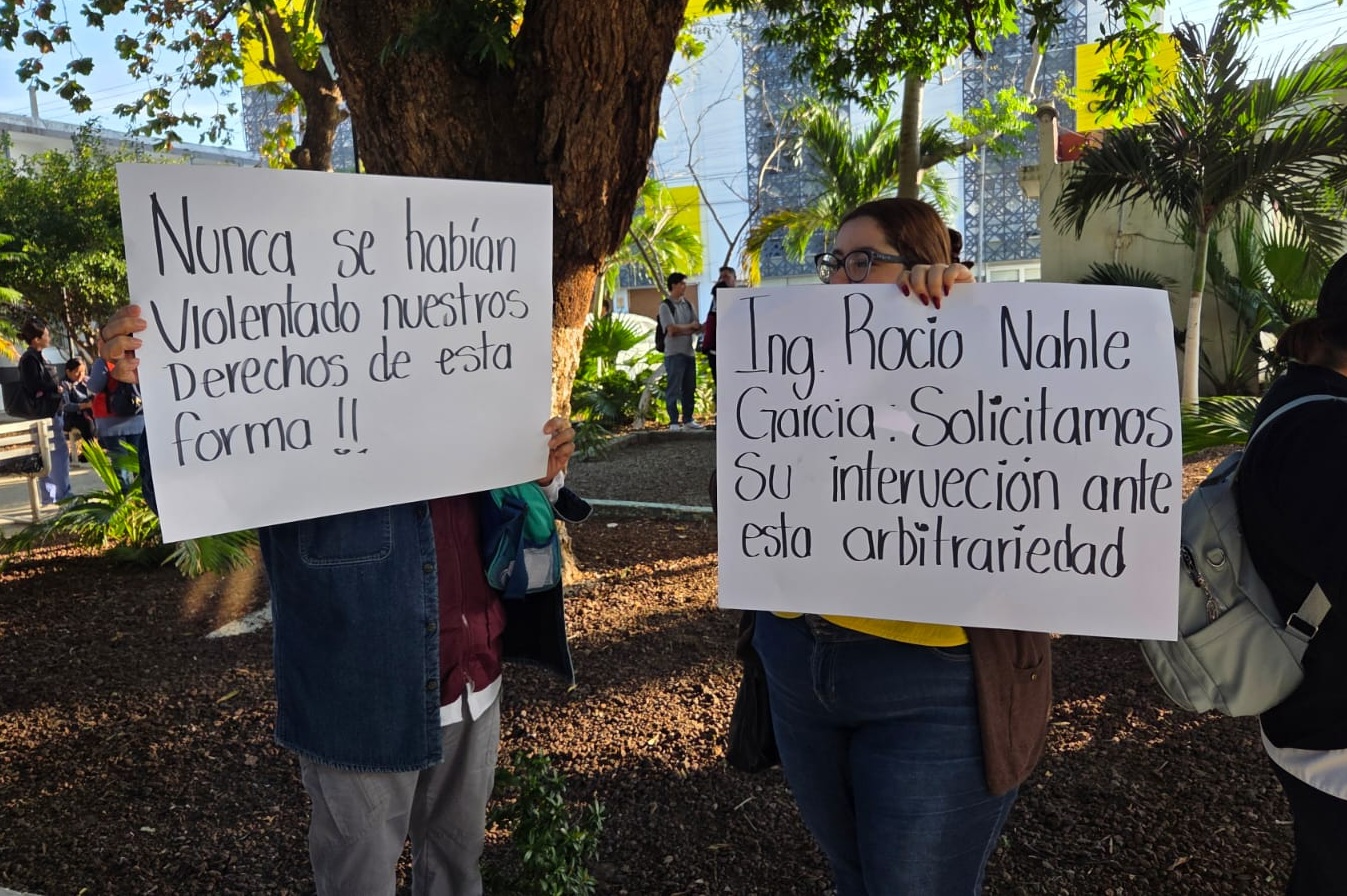 Nunca se habían
Violentado nuestros
Derechos de esta
forma !!
Ing. Rocio Nahle
Garcia : Solicitamos
Su intervección ante
esta arbitrariedad